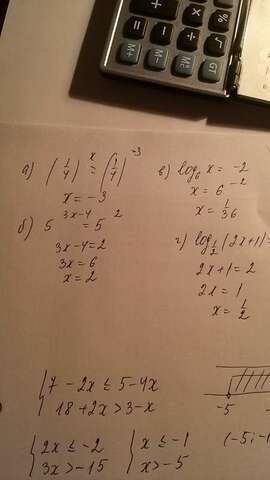 а) (1/4)^x = (1/4)^-3
x = -3
б) 5^(3x-4) = 5^2
3x-4=2
3x=6
x=2
в) log_6 x = -2
x = 6^-2
x = 1/36
г) log_1/2 (2x+1)=
2x+1=2
2x=1
x=1/2
{ 7 - 2x ≤ 5-4x
18 +2x > 3-x
{ 2x ≤ -2
3x > -15
{ x ≤ -1
x > -5
-5
(-5;-1
GT
%
√
MC
M-
M+
×
÷
+
-